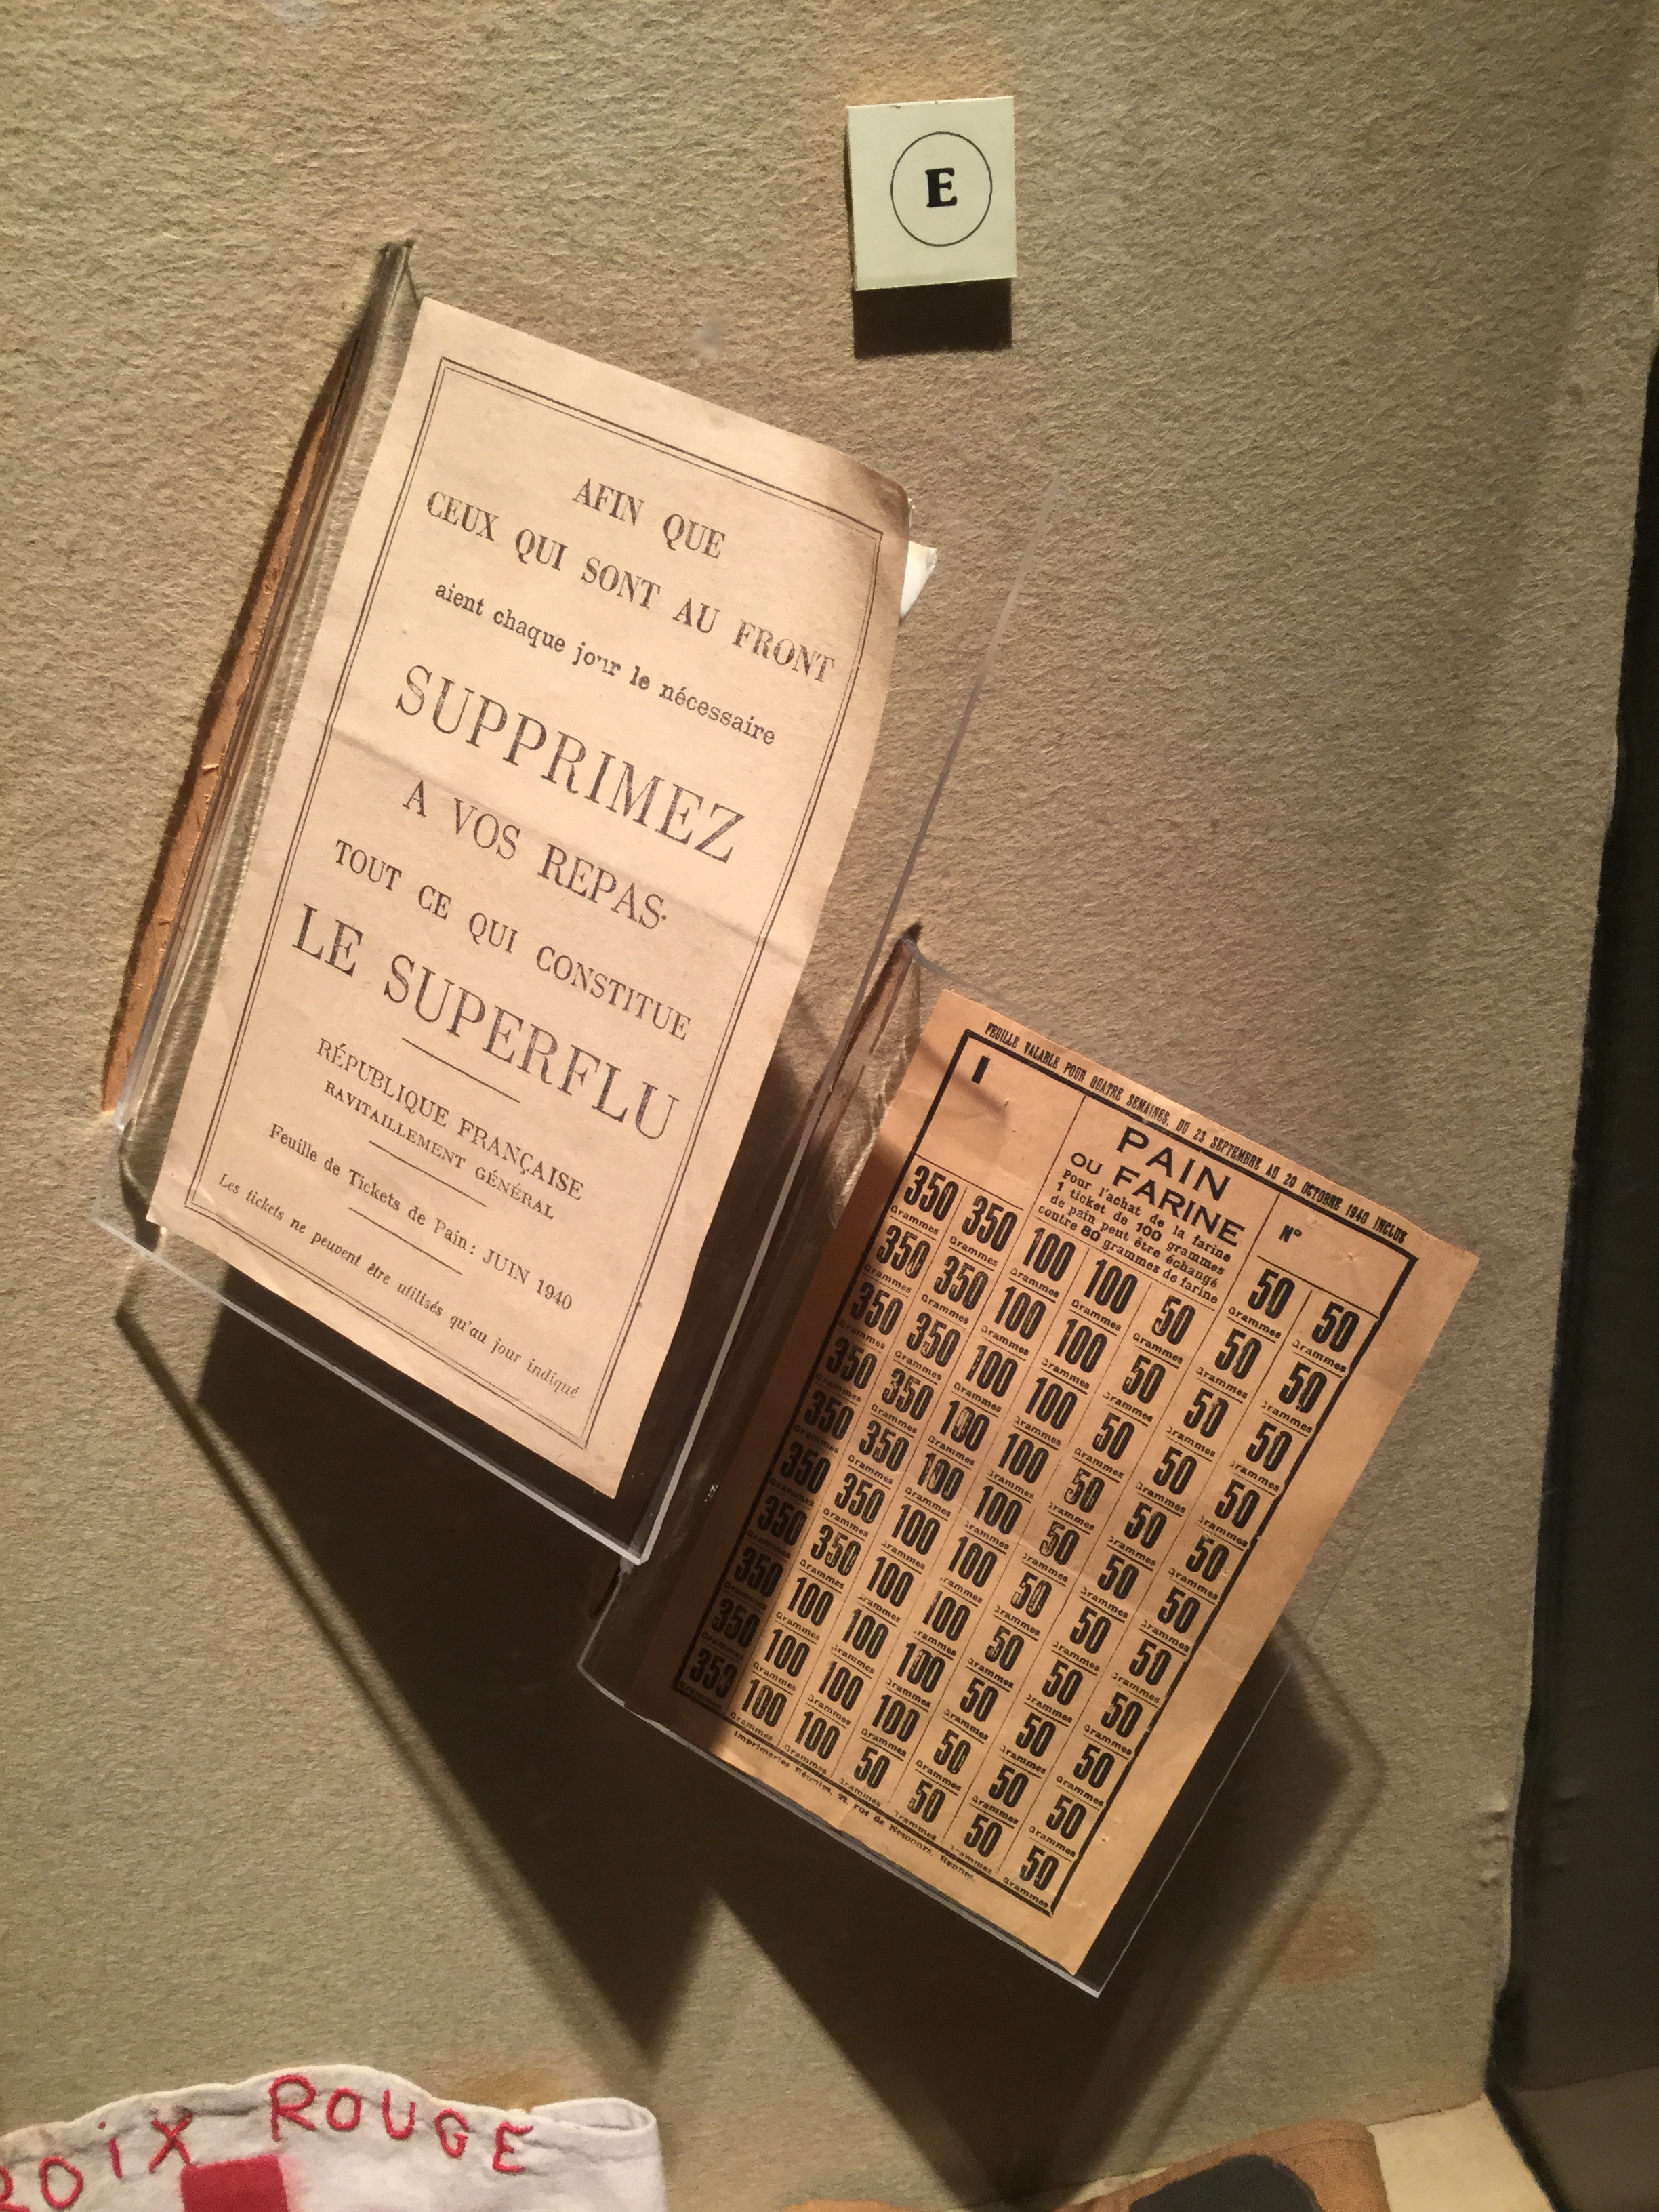 E
AFIN QUE
CEUX QUI SONT AU FRONT
aient chaque jour le nécessaire
SUPPRIMEZ
A VOS REPAS
TOUT CE QUI CONSTITUE
LE SUPERFLU
RÉPUBLIQUE FRANÇAISE
RAVITAILLEMENT GÉNÉRAL
Feuille de Tickets de Pain : JUIN 1940
Les tickets ne peuvent être utilisés qu'au jour indiqué
FEUILLE VALABLE POUR QUATRE SEMAINES, DU 23 SEPTEMBRE AU 20 OCTOBRE 1940 INCLUS
I
PAIN
OU FARINE
Pour l'achat de la farine
1 ticket de 100 grammes
de pain peut être échangé
contre 80 grammes de farine
N°
50 50
Grammes Grammes
350 350 100 100 50 50 50
Grammes Grammes Grammes Grammes Grammes Grammes Grammes
350 350 100 100 50 50 50
Grammes Grammes Grammes Grammes Grammes Grammes Grammes
350 350 100 100 50 50 50
Grammes Grammes Grammes Grammes Grammes Grammes Grammes
350 350 100 100 50 50 50
Grammes Grammes Grammes Grammes Grammes Grammes Grammes
350 350 100 100 50 50 50
Grammes Grammes Grammes Grammes Grammes Grammes Grammes
350 350 100 100 50 50 50
Grammes Grammes Grammes Grammes Grammes Grammes Grammes
350 350 100 100 50 50 50
Grammes Grammes Grammes Grammes Grammes Grammes Grammes
350 100 100 100 50 50 50
Grammes Grammes Grammes Grammes Grammes Grammes Grammes
350 100 100 100 50 50 50
Grammes Grammes Grammes Grammes Grammes Grammes Grammes
350 100 100 50 50 50 50
Grammes Grammes Grammes Grammes Grammes Grammes Grammes
Imprimeries Réunies, rue de Nemours, Rennes
ROiX ROUGE